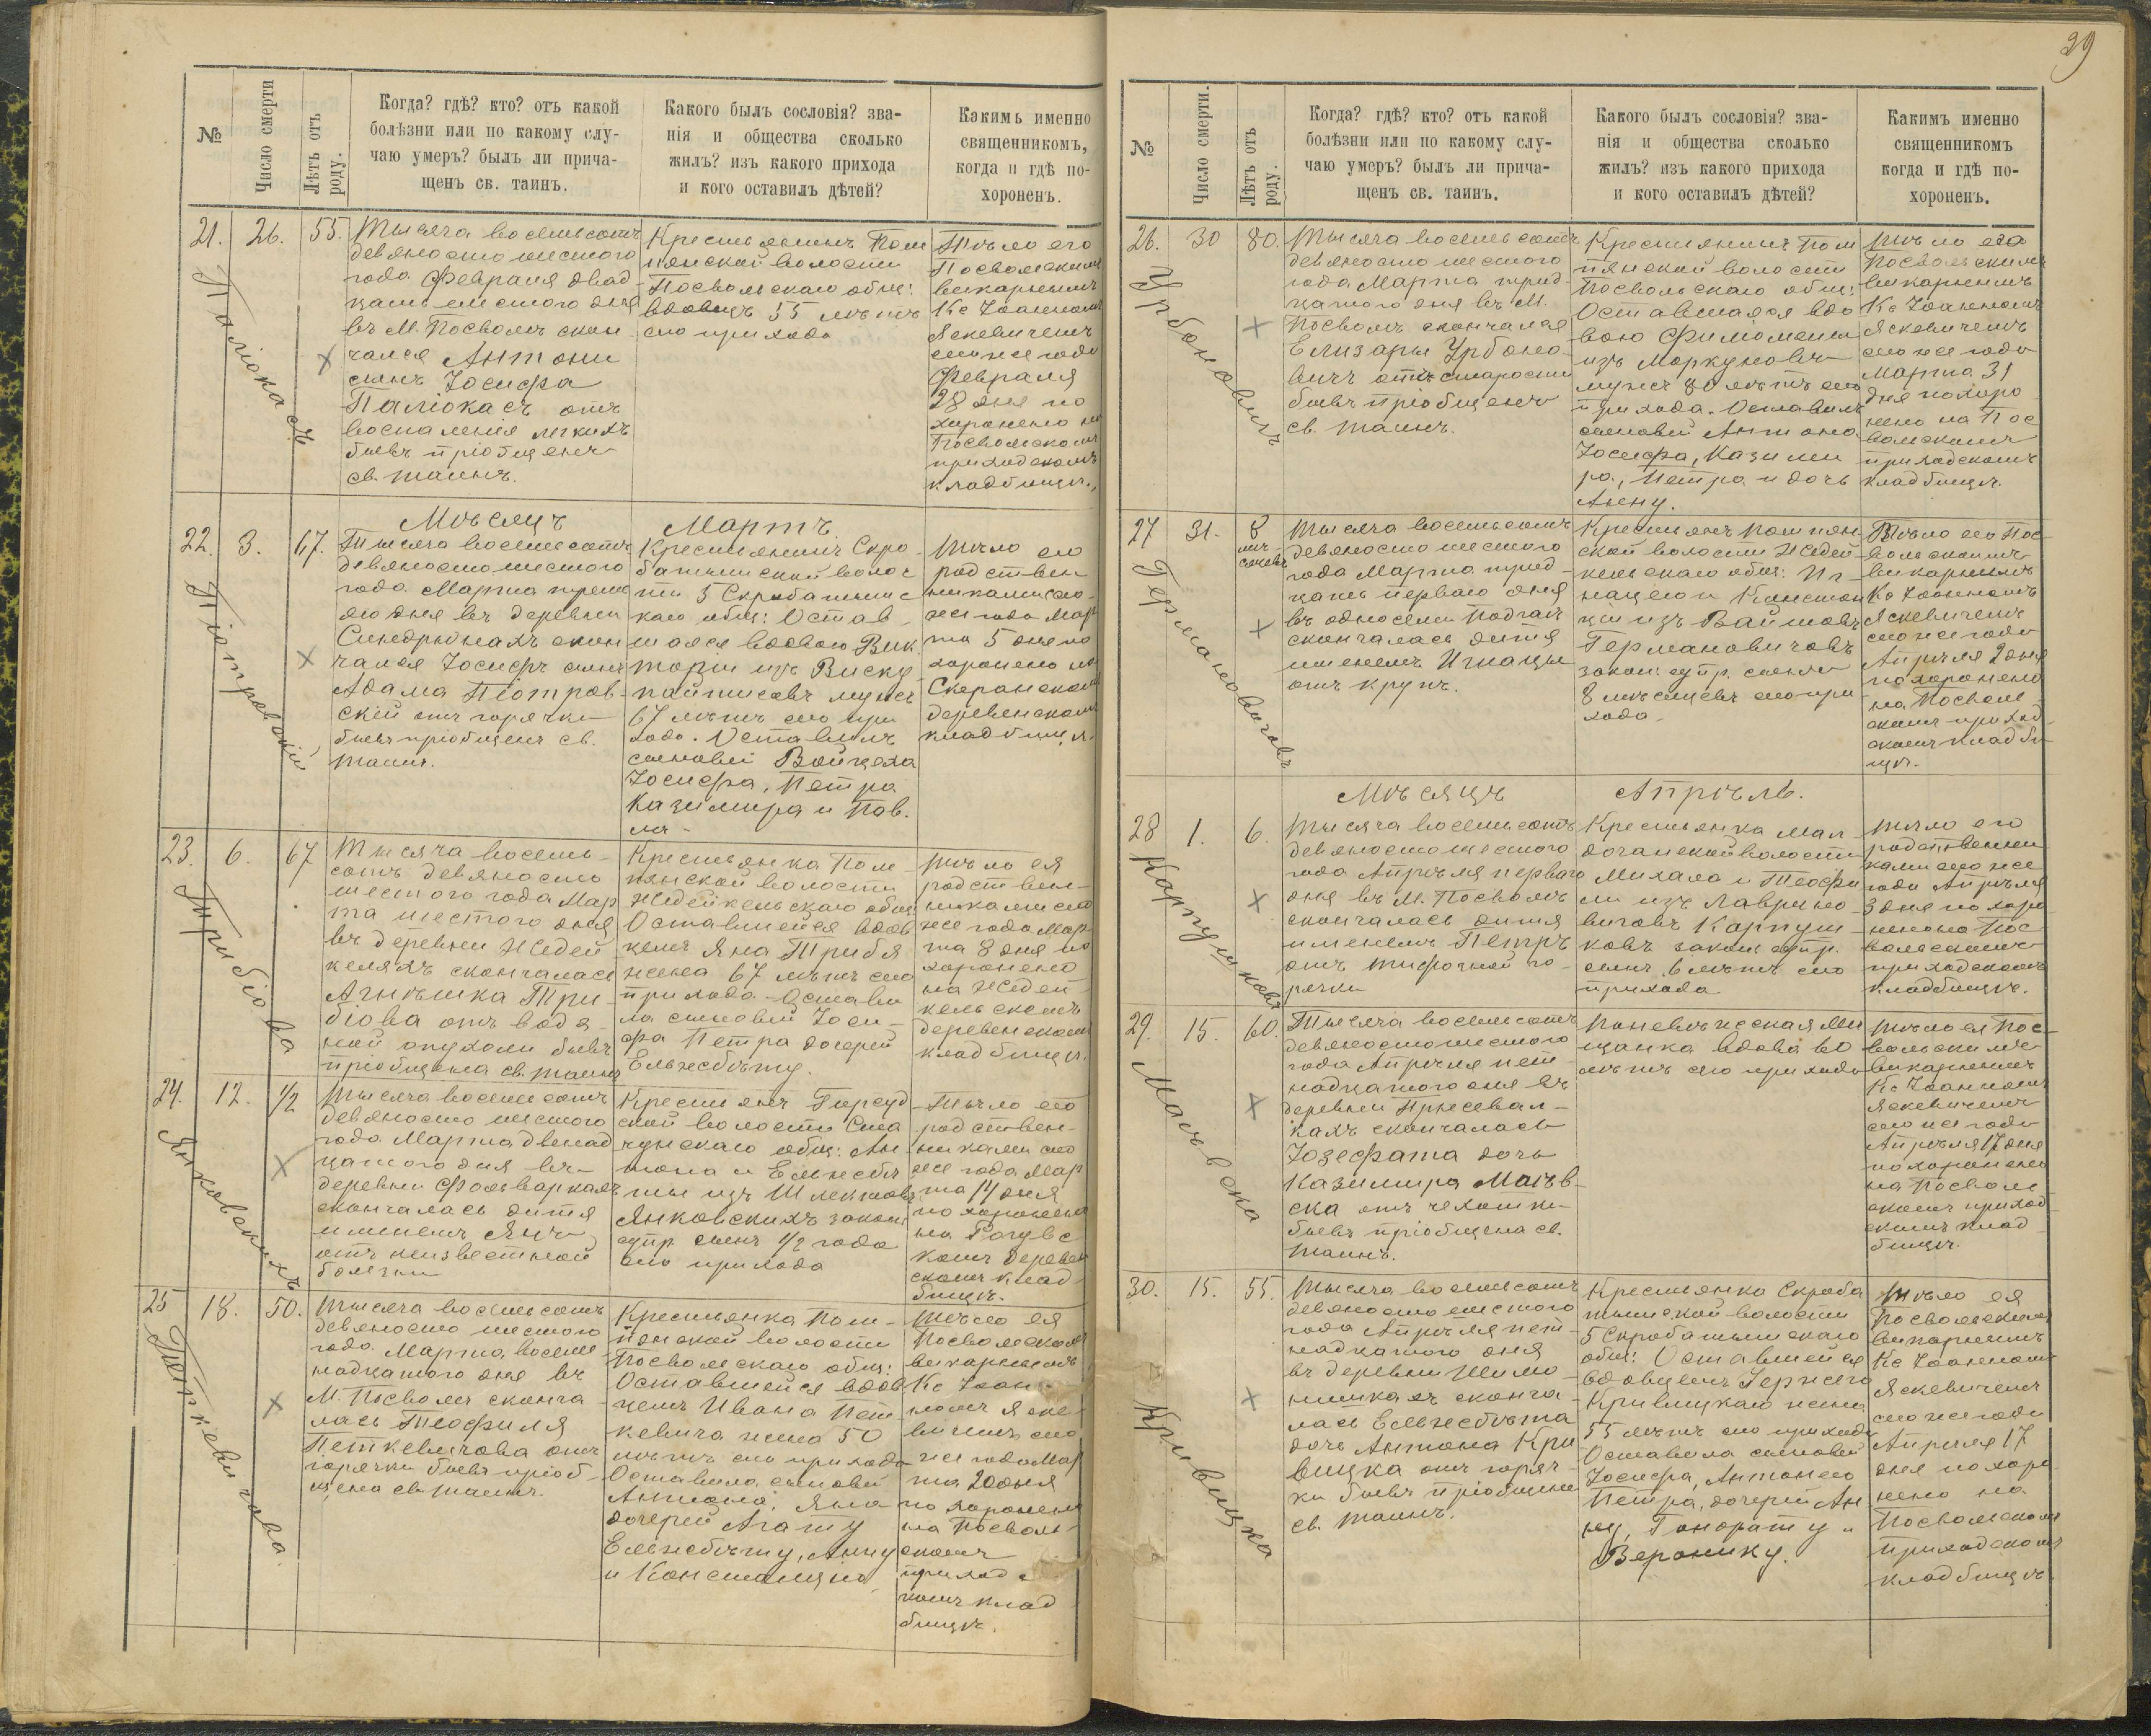 39
№
Число смерти
Лѣтъ отъ
роду.
Когда? гдѣ? кто? отъ какой
болѣзни или по какому слу-
чаю умеръ? былъ ли прича-
щенъ св. таинъ.
Какого былъ сословія? зва-
нія и общества сколько
жилъ? изъ какого прихода
и кого оставилъ дѣтей?
Какимъ именно
священникомъ,
когда и гдѣ по-
хороненъ.
21.
26.
55.
Паліокасъ
Тысяча восемьсотъ
девяносто шестого
года Февраля двад
цать шестого дня
въ М. Посволѣ скон
чался Антони
сынъ Іосифа
Паліокасъ отъ
воспаленія легкихъ
бывъ пріобщенъ
св. таинъ.
Крестьянинъ Пом
пянской волости
Посвольскаго общ:
вдовецъ 55 лѣтъ
сего прихода
Тѣло его
Посвольскимъ
викарнымъ
Кс Іоанномъ
Яскевичемъ
сего же года
Февраля
28 дня по
хоронено на
Посвольскомъ
приходскомъ
кладбищѣ.
Мѣсяцъ
Мартъ.
22.
3.
67.
Піотровскій
Тысяча восемьсотъ
девяносто шестого
года Марта треть
яго дня въ деревни
Синдрюнахъ скон
чался Іосифъ сынъ
Адама Піотров-
скій отъ горячки
бывъ пріобщенъ св.
таинъ.
Крестьянинъ Скро-
батышской волос
ти 5 Скробатышс
каго общ: Остав
шаяся вдовою Вик
торіи изъ Виску
пайтисовъ мужъ
67 лѣтъ сего при
хода. Оставилъ
сыновей Войцеха
Іосифа, Петра
Казимира и Пав.
ла
Тѣло его
родствен
никами сего
же года Мар
та 5 дня по
хоронено на
Скеранскомъ
деревенскомъ
кладбищѣ.
23.
6.
67
Трибіова
Тысяча восемь-
сотъ девяносто
шестого года Мар
та шестого дня
въ деревни Жедей
келяхъ скончалась
Агнѣшка Три-
біова отъ водя-
ной опухоли бывъ
пріобщена св. таинъ
Крестьянка Пом-
пянской волости
Жедейкельскаго общ:
Оставшейся вдов
цемъ Яна Трибя
жена 67 лѣтъ сего
прихода. Остави
ла сыновей Іоси-
фа Петра дочерей
Ельжебѣту.
Тѣло ея
родствен-
никами сего
же года Мар
та 8 дня по
хоронено
на Жедей
кельскомъ
деревенскомъ
кладбищѣ.
24.
12.
1/2
Янковскихъ
Тысяча восемьсотъ
девяносто шестого
года Марта двенад
цатого дня въ
деревни Фольваркахъ
скончалась дитя
именемъ Янъ
отъ неизвестной
болезни
Крестьянъ Гирсуд
ской волости Сма
чунскаго общ: Ан
тона и Ельжебѣ
ты изъ Шлектовъ
Янковскихъ закон
супр. сынъ 1/2 года
сего прихода
Тѣло его
родствен-
никами сего
же года Мар
та 14 дня
похоронено
на Рагувс
комъ деревен
скомъ клад-
бищѣ.
25
18.
50.
Петкевичова.
Тысяча восемьсотъ
девяносто шестого
года Марта восем
надцатого дня въ
М. Посволѣ сконча
лась Теофиля
Петкевичова отъ
горячки бывъ пріоб-
щена св. таинъ.
Крестьянка Пом-
пянской волости
Посвольскаго общ:
Оставшейся вдов
цемъ Ивана Пет
кевича жена 50
лѣтъ сего прихода
Оставила сыновей
Антона, Яна
дочерей Агату
Ельжебѣту, Анну
и Констанцію
Тѣло ея
Посвольскимъ
викарнымъ
Кс Іоан-
номъ Яске
вичемъ сего
же года Мар
та 20 дня
похоронено
на Посволь-
скомъ
приходс
комъ клад
бищѣ.
№
Число смерти.
Лѣтъ отъ
роду.
Когда? гдѣ? кто? отъ какой
болѣзни или по какому слу-
чаю умеръ? былъ ли прича-
щенъ св. таинъ.
Какого былъ сословія? зва-
нія и общества сколько
жилъ? изъ какого прихода
и кого оставилъ дѣтей?
Какимъ именно
священникомъ
когда и гдѣ по-
хороненъ.
26.
30
80.
Урбоновичъ
Тысяча восемьсотъ
девяносто шестого
года Марта трид
цатого дня въ М.
Посволѣ скончался
Елизары Урбоно-
вичъ отъ старости
бывъ пріобщенъ
св. таинъ.
Крестьянинъ Пом
пянской волости
Посвольскаго общ:
Оставшаяся вдо
вою Филомены
изъ Моркуновъ
мужъ 80 лѣтъ сего
прихода. Оставилъ
сыновей Антона
Іосифа, Казими
ра, Петра и дочь
Анну.
Тѣло его
Посвольскимъ
викарнымъ
Кс Іоанномъ
Яскевичемъ
сего же года
Марта 31
дня похоро
нено на Пос
вольскомъ
приходскомъ
кладбищѣ.
27
31.
8
мѣ-
сяцевъ
Германовичовъ
Тысяча восемьсотъ
девяносто шестого
года Марта трид-
цать перваго дня
въ односели Подгай
скончалась дитя
именемъ Игнацы
отъ крупъ.
Крестьянъ Помпян
ской волости Жедей-
кельскаго общ: Иг-
нацего и Констан
ціи изъ Войшовъ
Германовичовъ
закон: супр. сынъ
8 мѣсяцевъ сего при
хода.
Тѣло его Пос-
вольскимъ
викарнымъ
Кс Іоанномъ
Яскевичемъ
сего же года
Апрѣля 2 дня
похоронено
на Посволь
скомъ приход
скомъ кладби-
щѣ.
Мѣсяцъ
Апрѣль.
28
1.
6.
Карпушковъ
Тысяча восемьсотъ
девяносто шестого
года Апрѣля перваго
дня въ М. Посволѣ
скончалась дитя
именемъ Петръ
отъ тифочной го-
рячки
Крестьянка Мал-
доганской волости
Михала и Теофи
ли изъ Лаврыно-
вичовъ Карпуш
ковъ закон супр.
сынъ 6 лѣтъ сего
прихода
Тѣло его
родственни
ками сего же
года Апрѣля
3 дня похоро
нено на Пос
вольскомъ
приходскомъ
кладбищѣ.
29.
15.
60.
Мацѣвска
Тысяча восемьсотъ
девяносто шестого
года Апрѣля пят
надцатого дня въ
деревни Трысевал-
кахъ скончалась
Іозефата дочь
Казимира Мацѣв-
ска отъ чехотки
бывъ пріобщена св.
таинъ.
Поневѣжская Ме
щанка вдова 60
лѣтъ сего прихода
Тѣло ея Пос-
вольскимъ
викарнымъ
Кс Іоанномъ
Яскевичемъ
сего же года
Апрѣля 17 дня
похоронено
на Посволь
скомъ приход
скомъ клад
бищѣ.
30.
15.
55.
Кривицка
Тысяча восемьсотъ
девяносто шестого
года Апрѣля пят-
надцатого дня
въ деревни Шимо-
нишкахъ сконча-
лась Ельжебѣта
дочь Антона Кри
вицка отъ горяч-
ки бывъ пріобщена
св. таинъ.
Крестьянка Скроба
тышской волости
5 Скробатышскаго
общ: Оставшейся
вдовцемъ Іержего
Кривицкаго жена
55 лѣтъ сего прихода
Оставила сыновей
Іосифа, Антонего
Петра, дочерей Ан
ну, Гонорату и
Веронику.
Тѣло ея
Посвольскимъ
викарнымъ
Кс Іоанномъ
Яскевичемъ
сего же года
Апрѣля 17
дня похоро
нено на
Посвольскомъ
приходскомъ
кладбищѣ